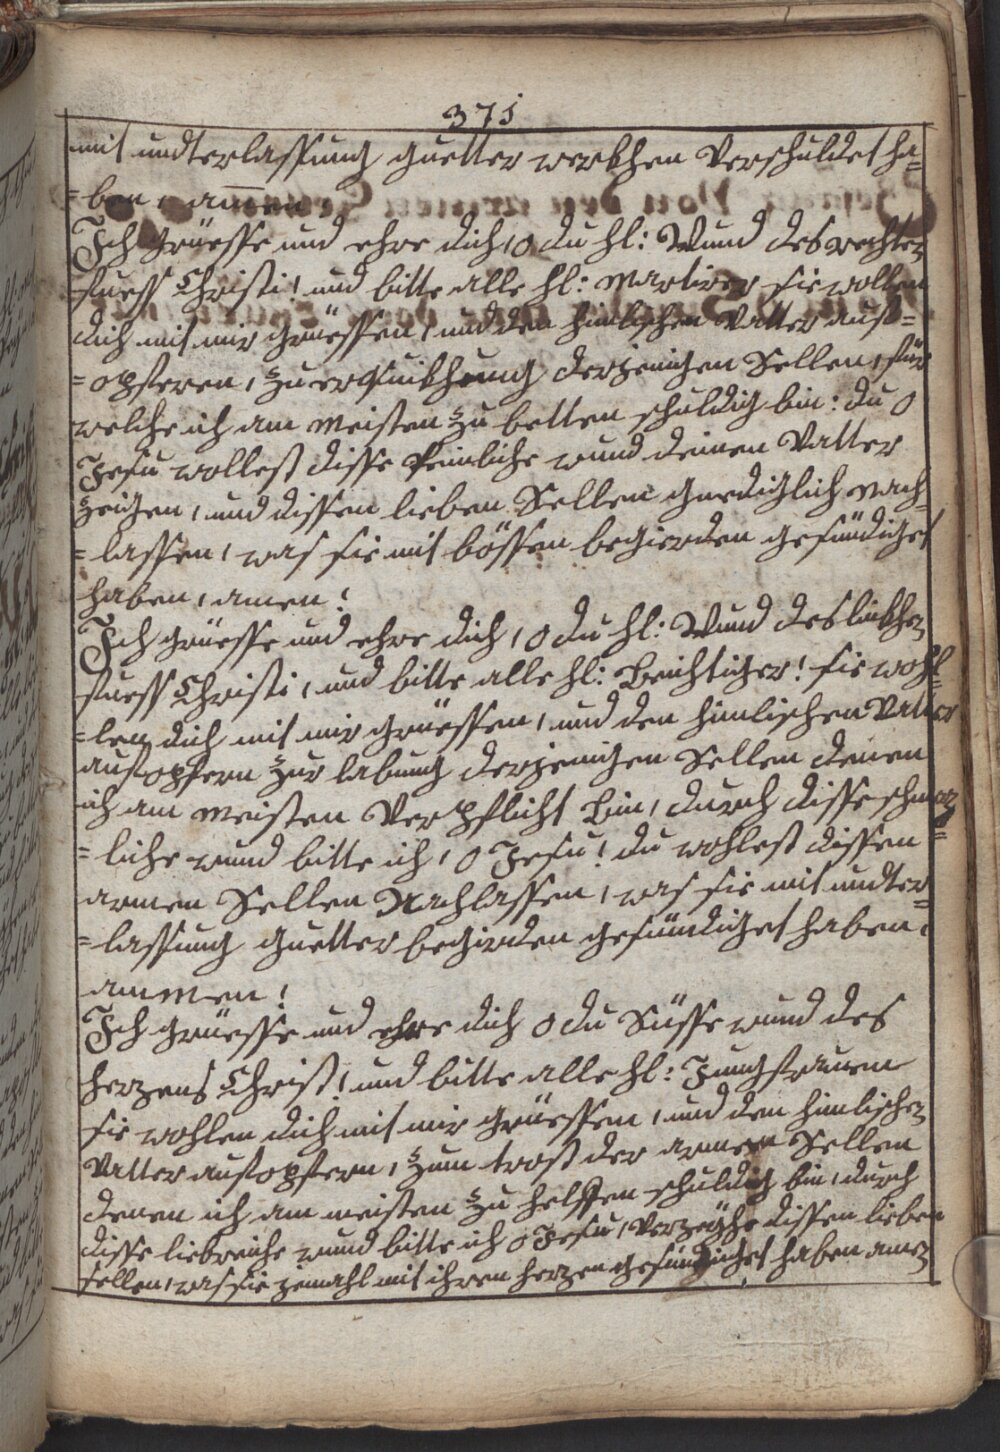 371
mit undterlassung guetter werkhen Verschuldet ha=
=ben, amen.
Ich grüesse und ehre dich, o du hl: Wund des rechten
fuess Christi! und bitte alle hl: Martirer sie wollen
dich mit mir grüessen, und den himlischen Vatter auf=
=opferen, zu erquikhung derjenigen Sellen, für
welche ich am meisten zu betten schuldig bin: du o
Jesu wollest disse peinliche wund deinen Vatter
zeigen, und dissen lieben Sellen gnediglich nach=
=lassen, was sie mit bössen begierden gesündiget
haben, amen!
Ich grüesse und ehre dich, o du hl: Wund des linkhen
fuess Christi, und bitte alle hl: Beichtiger! sie wohl=
=len dich mit mir grüessen, und den himlischen Vatter
aufopfern zur labung derjenigen Sellen denen
ich am meisten Verpflicht bin, durch disse schmerz=
=liche wund bitte ich, o Jesu! du wohlest dissen
armen Sellen Nachlassen, was sie mit undter=
=lassung guetter begirden gesündiget haben,
ammen!
Ich grüesse und ehre dich o du Süsse wund des
herzens Christi! und bitte alle hl: Jungfrauen
sie wohlen dich mit mir grüessen, und dem himlischen
Vatter aufopfern, zum trost der armen Sellen
denen ich am meisten zu helffen schuldig bin, durch
disse liebreiche wund bitte ich o Jesu, Verzeyhe dissen lieben
sellen, was sie jemahl mit ihren herzen gesündiget haben amen